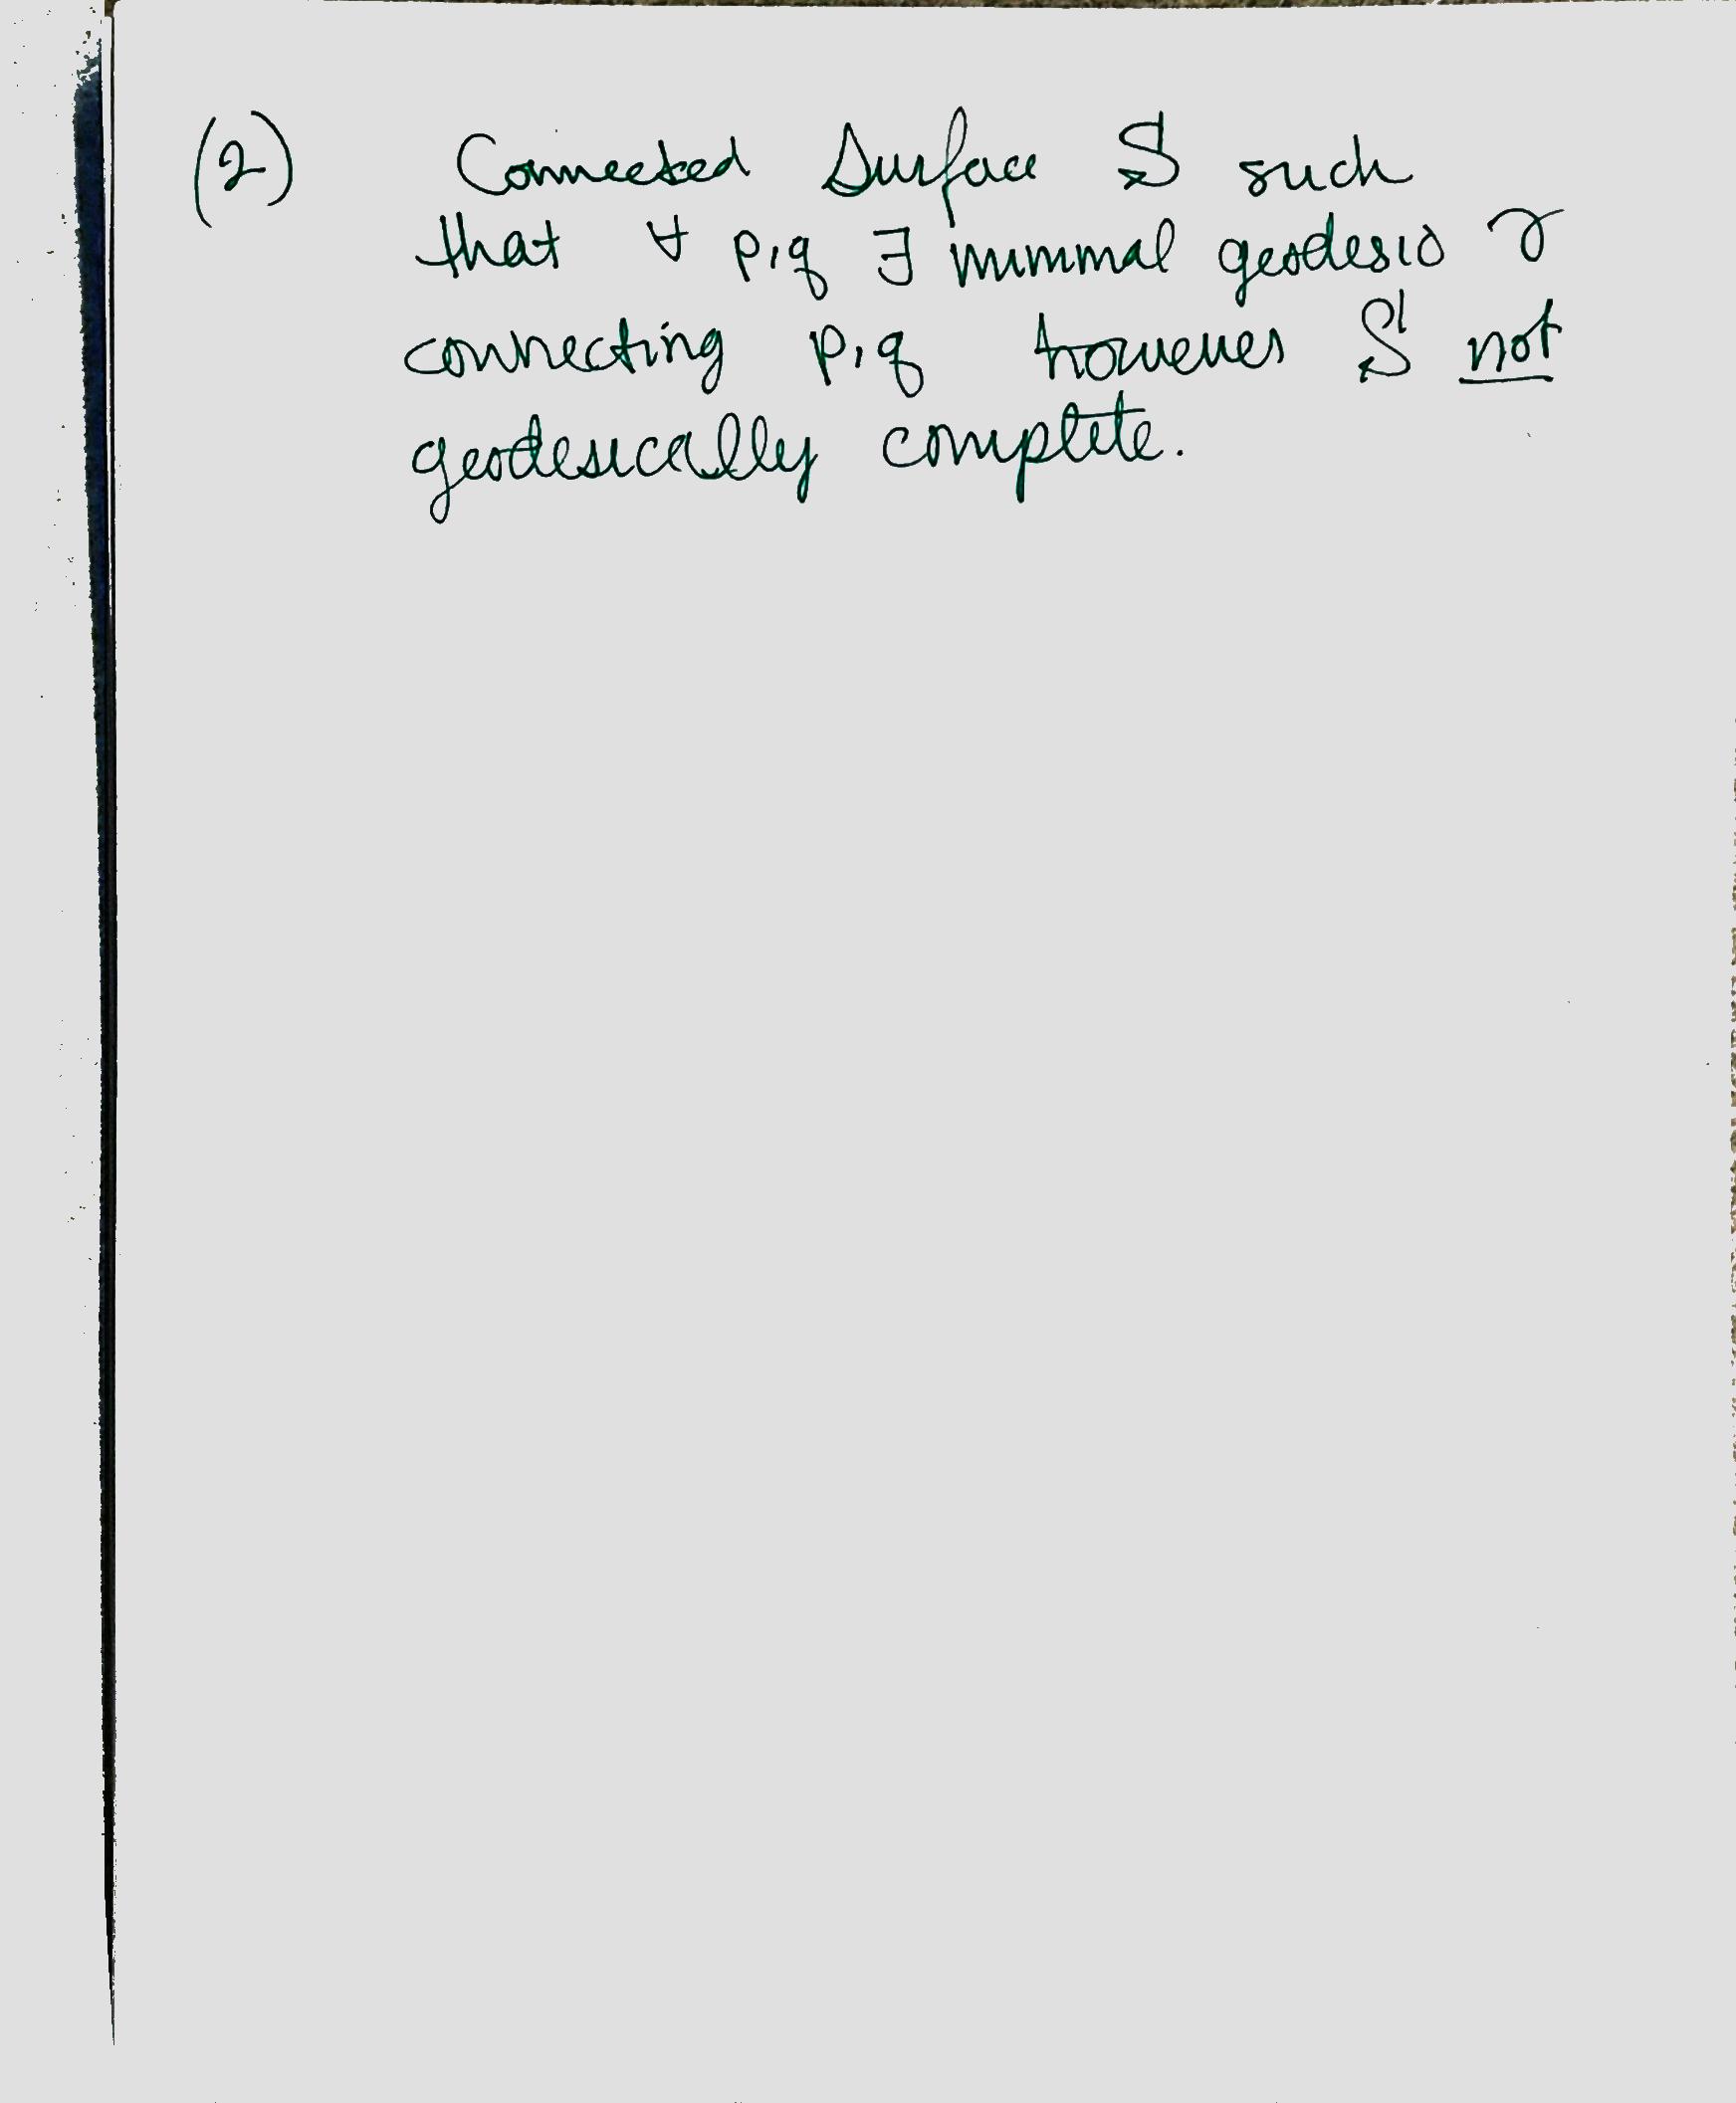 (2) Connected Surface S such
that ∀ p,q ∃ minimal geodesic γ
connecting p,q however S not
geodesically complete.